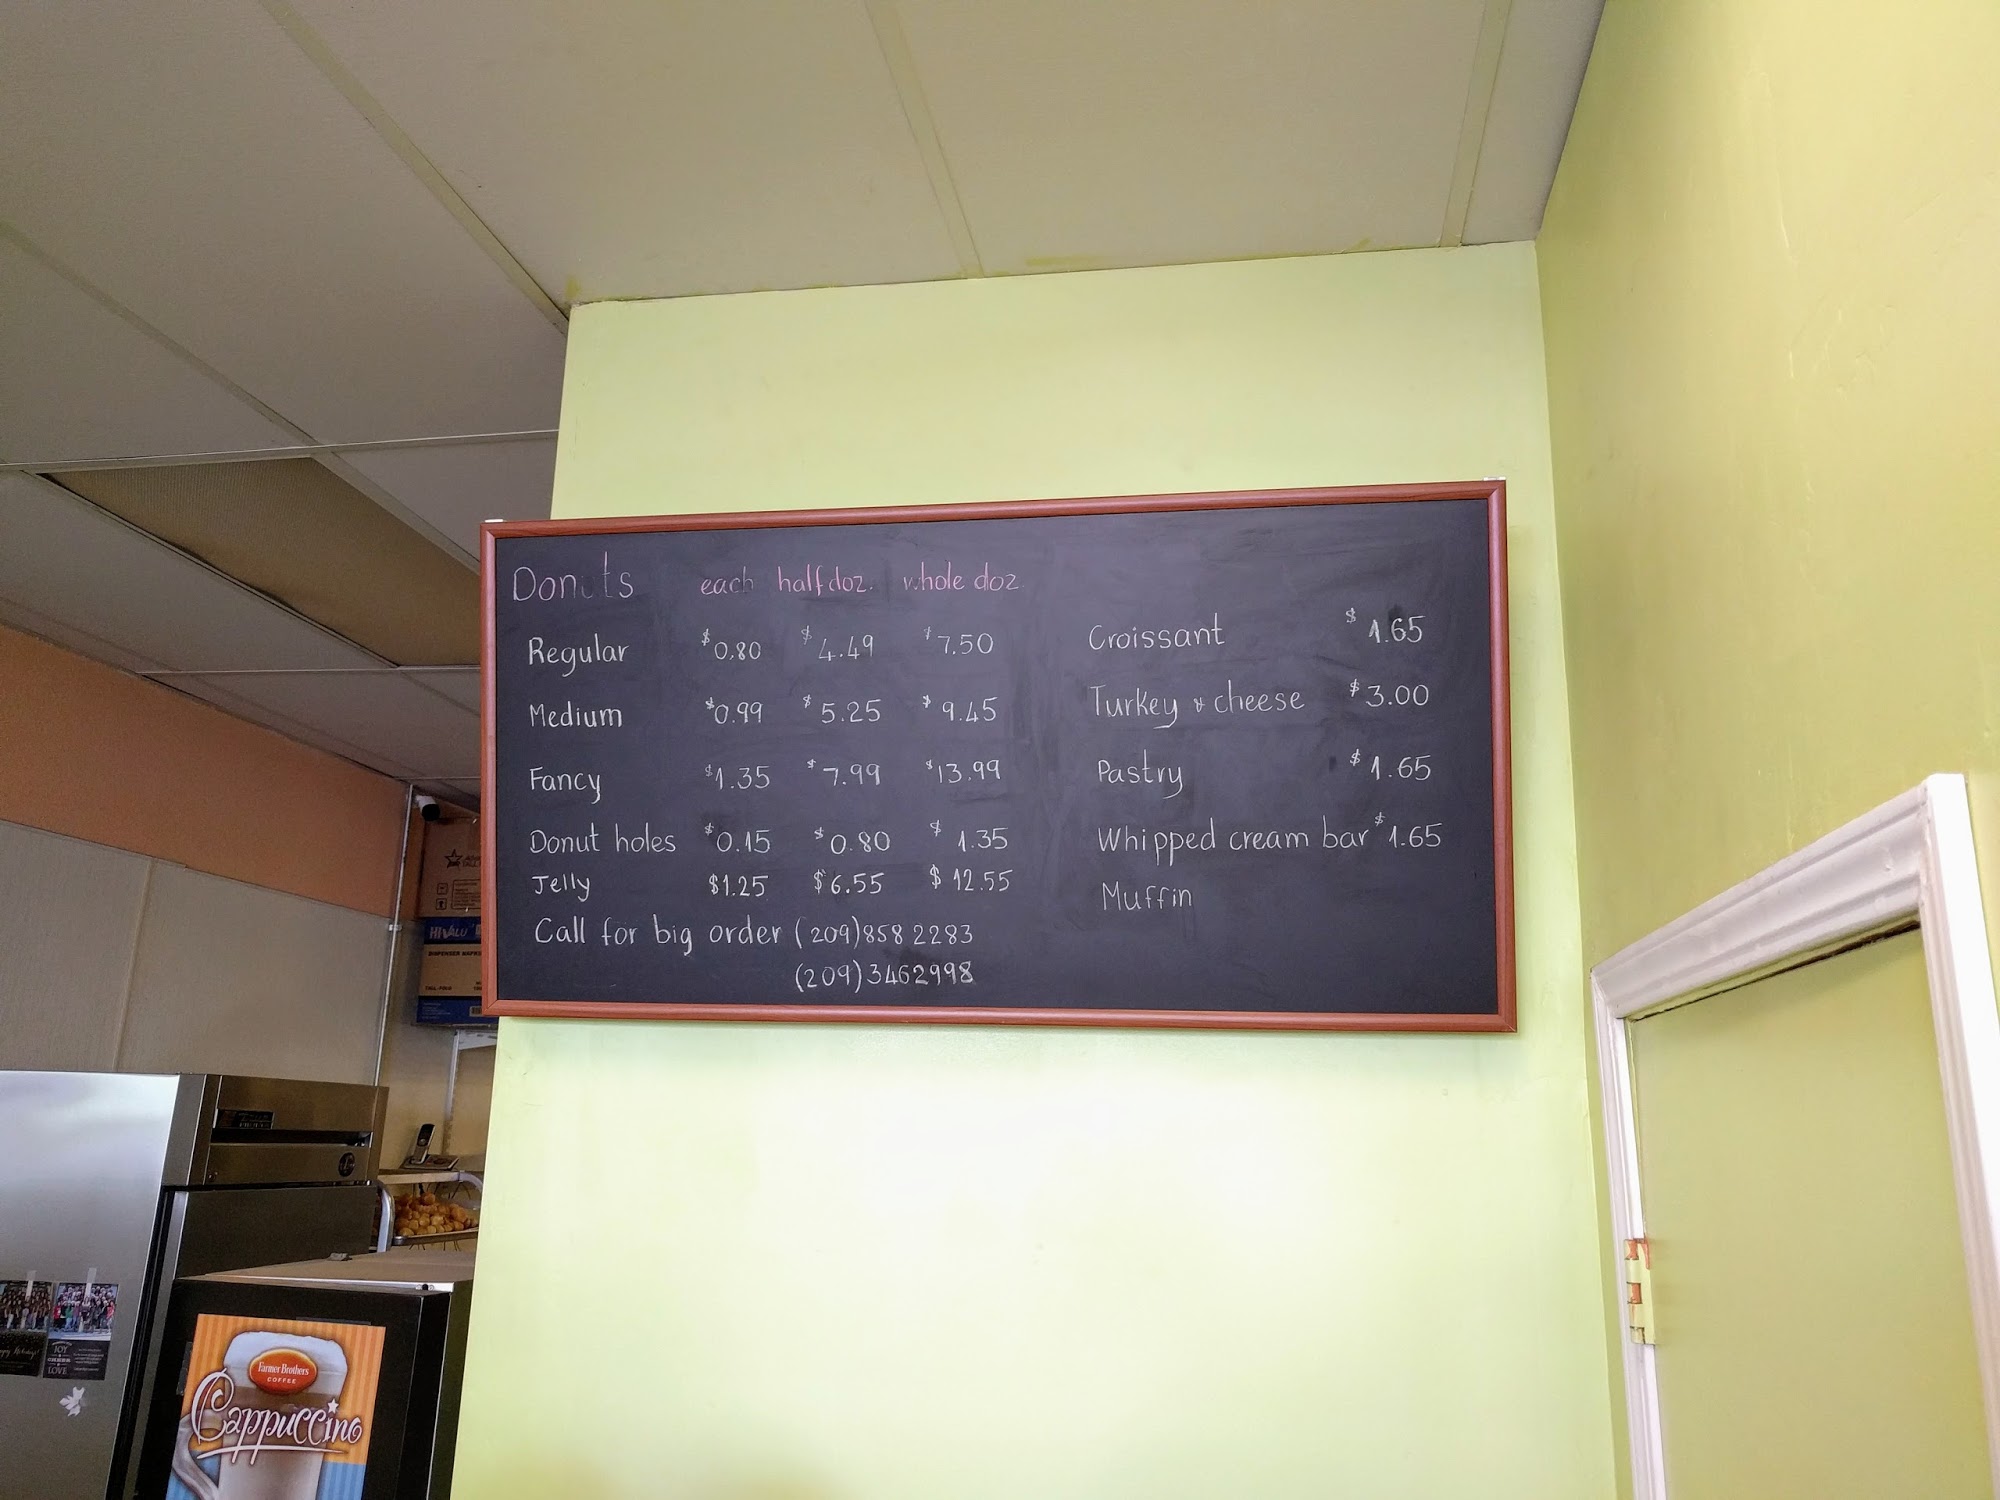 Donuts each half doz. whole doz.
Regular $0.80 $4.49 $7.50
Medium $0.99 $5.25 $9.45
Fancy $1.35 $7.99 $13.99
Donut holes $0.15 $0.80 $1.35
Jelly $1.25 $6.55 $12.55
Call for big order (209)858 2283
(209)3462998
Croissant $1.65
Turkey & cheese $3.00
Pastry $1.65
Whipped cream bar $1.65
Muffin
HIVALU
Farmer Brothers
COFFEE
Cappuccino
JOY
CHEER
LOVE